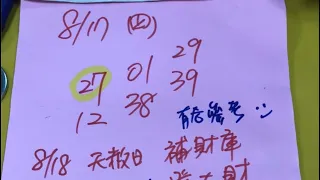 8/17 (四)
27 01 29
12 38 39
有想參考
8/18 天赦日 補財庫
大財